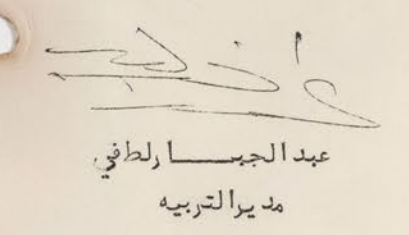 عبد الجبـــــار لطافي
مدير التربيه